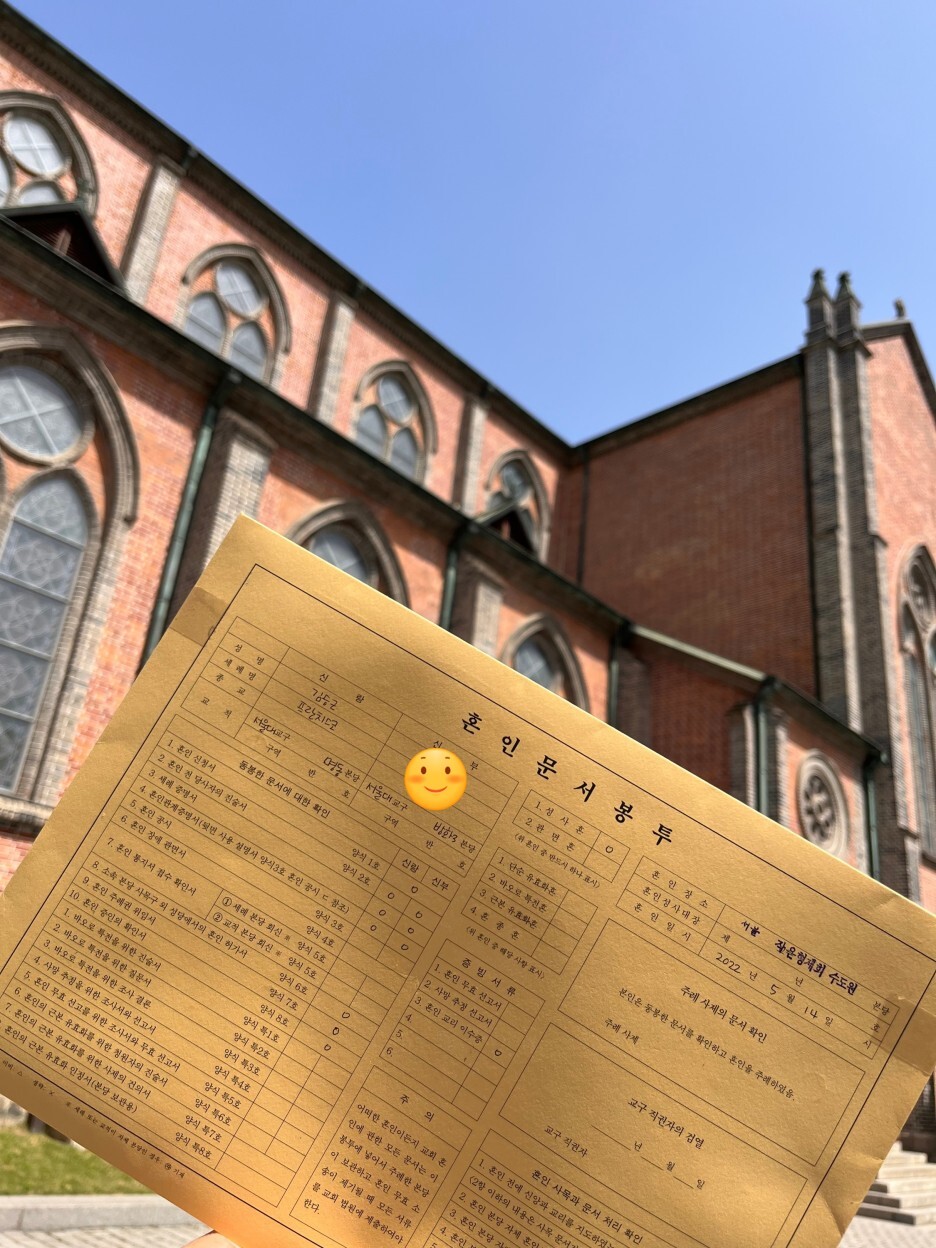 혼인문서봉투
신랑
신부
성명
김동근
세례명
프란치스코
종교
교적
서울대교구
명동 본당
서울대교구
방화3 본당
구역
반
호
구역
반
호
동봉한 문서에 대한 확인
신랑 신부
1. 혼인 신청서 양식 1호
2. 혼인 전 당사자의 진술서 양식 2호 O O
3. 세례 증명서 O O
4. 혼인관계증명서(뒷면 사용 설명서 양식3호 혼인 공시 ㄷ 참조) O O
5. 혼인 공시 양식 3호
6. 혼인 장애 관면서 양식 4호
7. 혼인 통지서 접수 확인서
① 세례 본당 회신 = 양식 5호
② 교적 본당 회신 = 양식 5호
8. 소속 본당 사목구 외 성당에서의 혼인 허가서 양식 6호
9. 혼인 주례권 위임서 양식 7호 O
10. 혼인 증인의 확인서 양식 8호 O
1. 바오로 특전을 위한 진술서 양식 특1호
2. 바오로 특전을 위한 질문서 양식 특2호
3. 바오로 특전을 위한 조사 결론 양식 특3호
4. 사망 추정을 위한 조사서와 선고서 양식 특4호
5. 혼인 무효 선고를 위한 조사서와 무효 선고서 양식 특5호
6. 혼인의 근본 유효화를 위한 청원자의 진술서 양식 특6호
7. 혼인의 근본 유효화를 위한 사제의 건의서 양식 특7호
혼인의 근본 유효화 인정서(본당 보관용) 양식 특8호
1. 성사혼
2. 관면혼 O
(위 혼인 중 반드시 하나 표시)
1. 단순 유효화혼
2. 바오로 특전혼
3. 근본 유효화혼
4. 혼종혼
(위 혼인 중 해당 사항 표시)
증빙서류
1. 혼인 무효 선고서
2. 사망 추정 선고서
3. 혼인 교리 이수증 O
4.
5.
6.
주의
어떠한 혼인이든지 교회 혼
인에 관한 모든 문서는 이
봉투에 넣어서 주례한 본당
이 보관하고, 혼인 무효 소
송이 제기될 때 모든 서류
를 교회 법원에 제출하여야
한다.
혼인장소 서울 작은형제회 수도원 본당
혼인성사대장 제 년 호
혼인일시 2022 년 5 월 14 일 시
주례 사제의 문서 확인
본인은 동봉한 문서를 확인하고 혼인을 주례하였음.
주례 사제
교구 직권자의 검열
년 월 일
교구 직권자
혼인 사목과 문서 처리 확인
1. 혼인 전에 신앙과 교리를 지도하였는
(2항 이하의 내용은 사목 문서
2. 혼인 본당 자체 혼인대
3. 혼인 본당 자
4. 혼인
5.